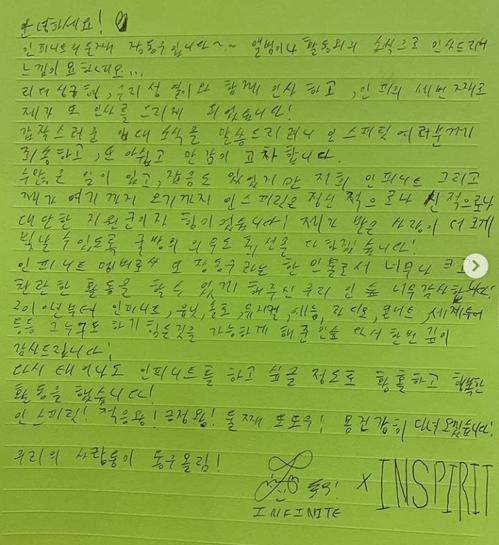 안녕하세요!
인피니트의 둘째 장동우입니다~~ 앨범이나 활동외의 소식으로 인사드리려니
느낌이 묘하네요...
리더 성규형, 우리 성열이와 함께 인사하고, 인피의 세번째로
제가 또 인사를 드리게 되었습니다!
갑작스러운 입대 소식을 말씀드리려니 인스피릿 여러분께
죄송하고, 또 아쉽고 만감이 교차합니다.
수많은 일이 있고, 잡음도 있었지만 저희 인피니트 그리고
제가 여기까지 오기까지 인스피릿은 정신적으로나 신적으로나
대단한 지원군이자 힘이었습니다! 제가 받은 사랑이 더 크게
빛날 수 있도록 국방의 의무도 최선을 다하겠습니다!
인피니트 멤버로서 또 장동우라는 한 인물로서 너무나 크고
찬란한 활동을 할 수 있게 해주신 우리 인숲 너무 감사합니다!
2010년부터 인피니트, 유닛, 솔로, 뮤지컬, 예능, 라디오, 콘서트, 세계투어
등등 그 누구도 하기 힘든것을 가능하게 해준 인숲 다시 한번 깊이
감사드립니다!
다시 태어나도 인피니트를 하고 싶을 정도로 황홀하고 행복한
활동을 했습니다!
인스피릿! 적응왕! 긍정왕! 둘째 또또우! 몸 건강히 다녀오겠습니다!
우리의 사랑둥이 동우올림!
INFINITE
X INSPIRIT